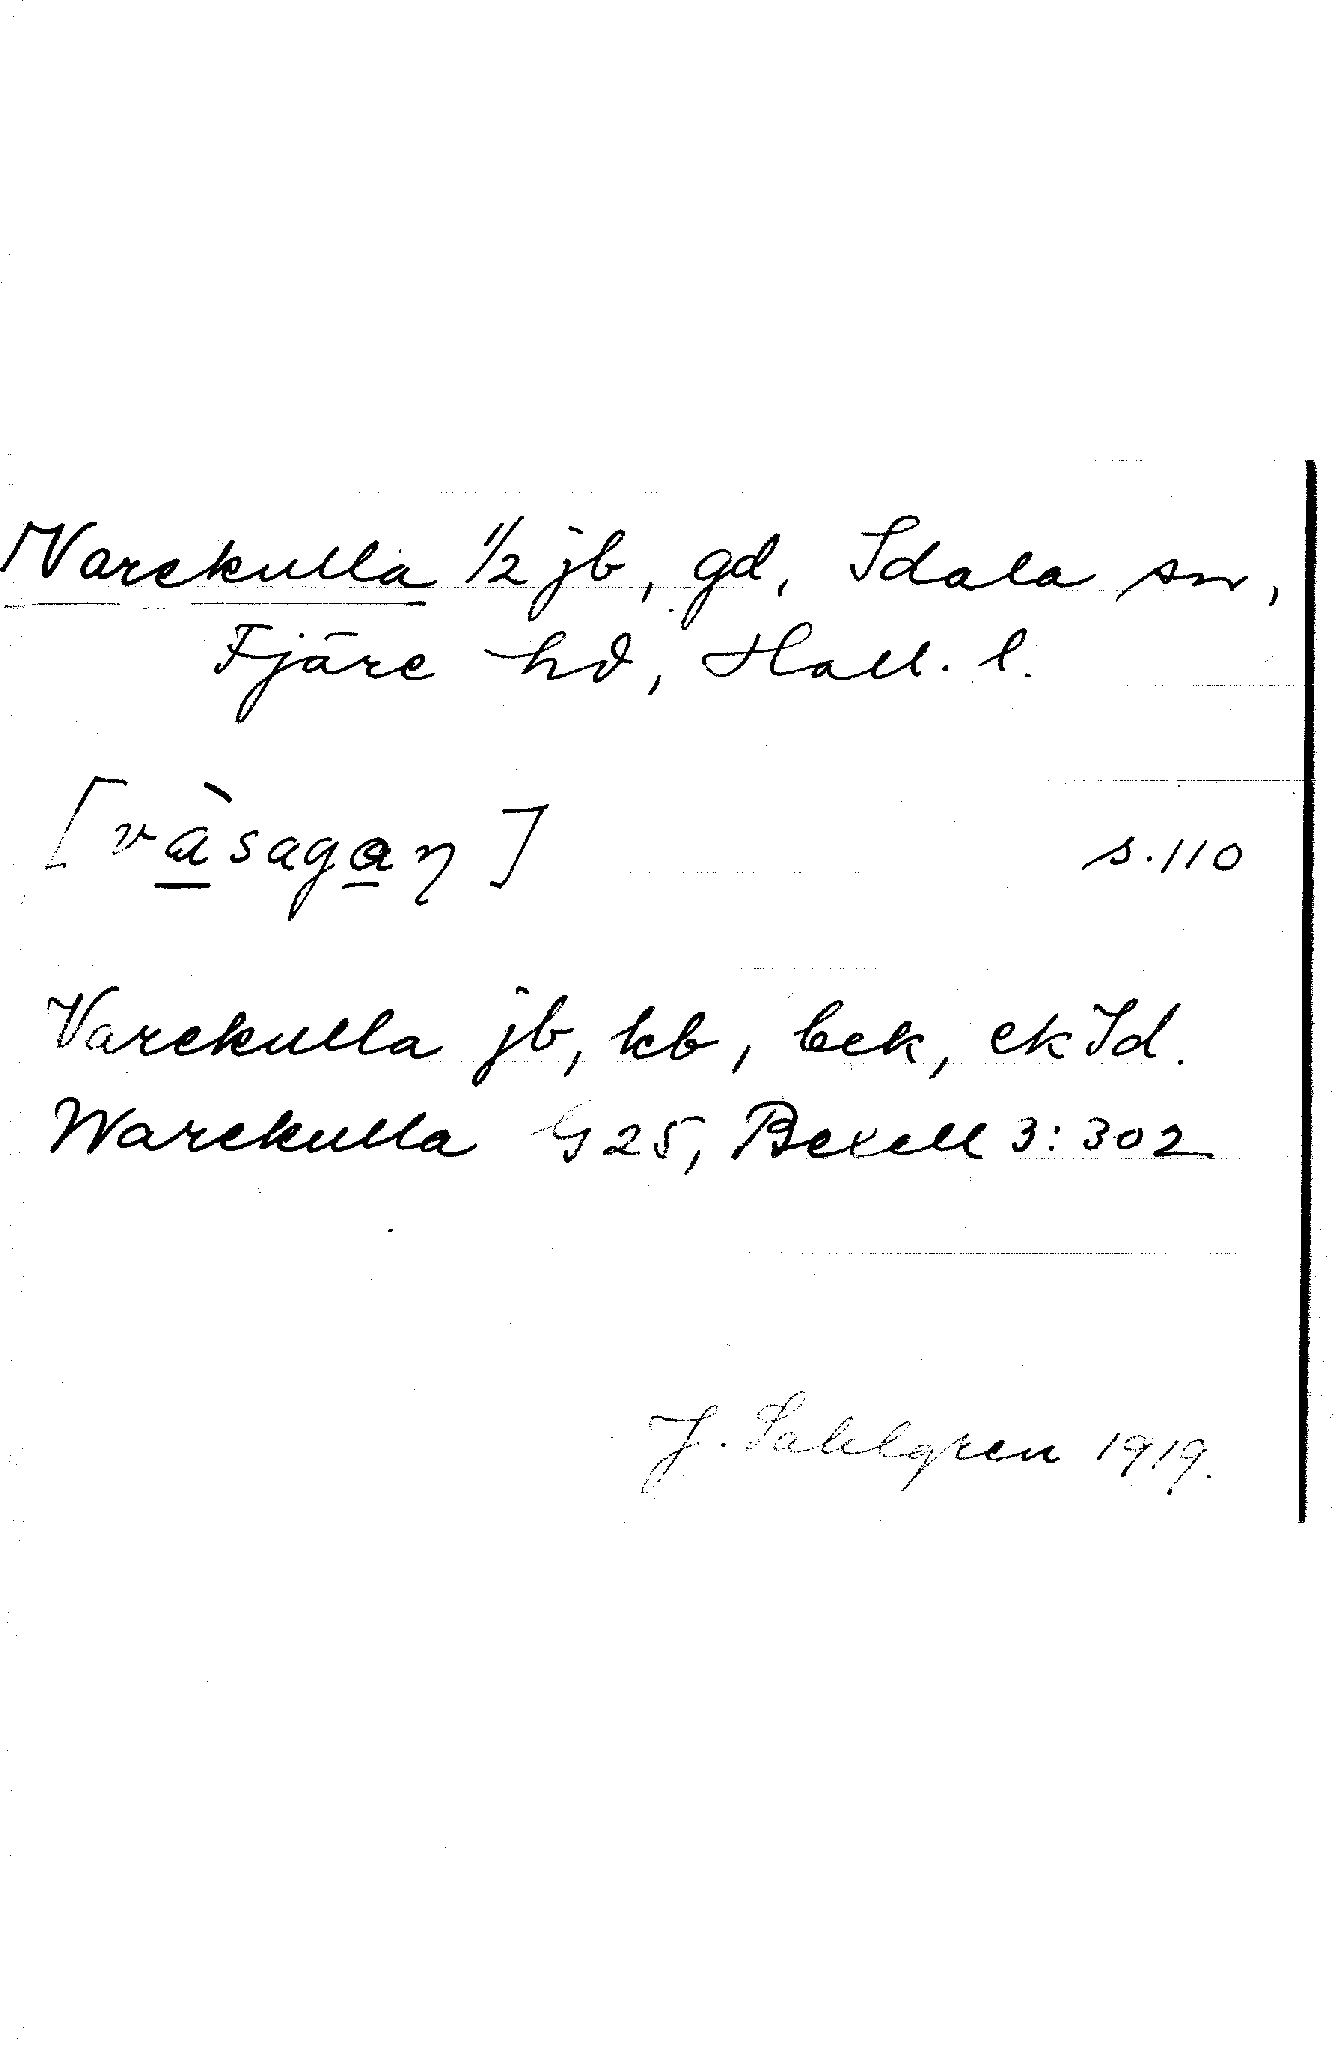 Varekulla 1/2 jb, gd, Idala sn,
Fjäre hd, Hall. l.
[vàsagaη] s.110
Varekulla jb, kb, bek, ek Id.
Warekulla G 25, Bexell 3:302
J. Sahlgren 1919.